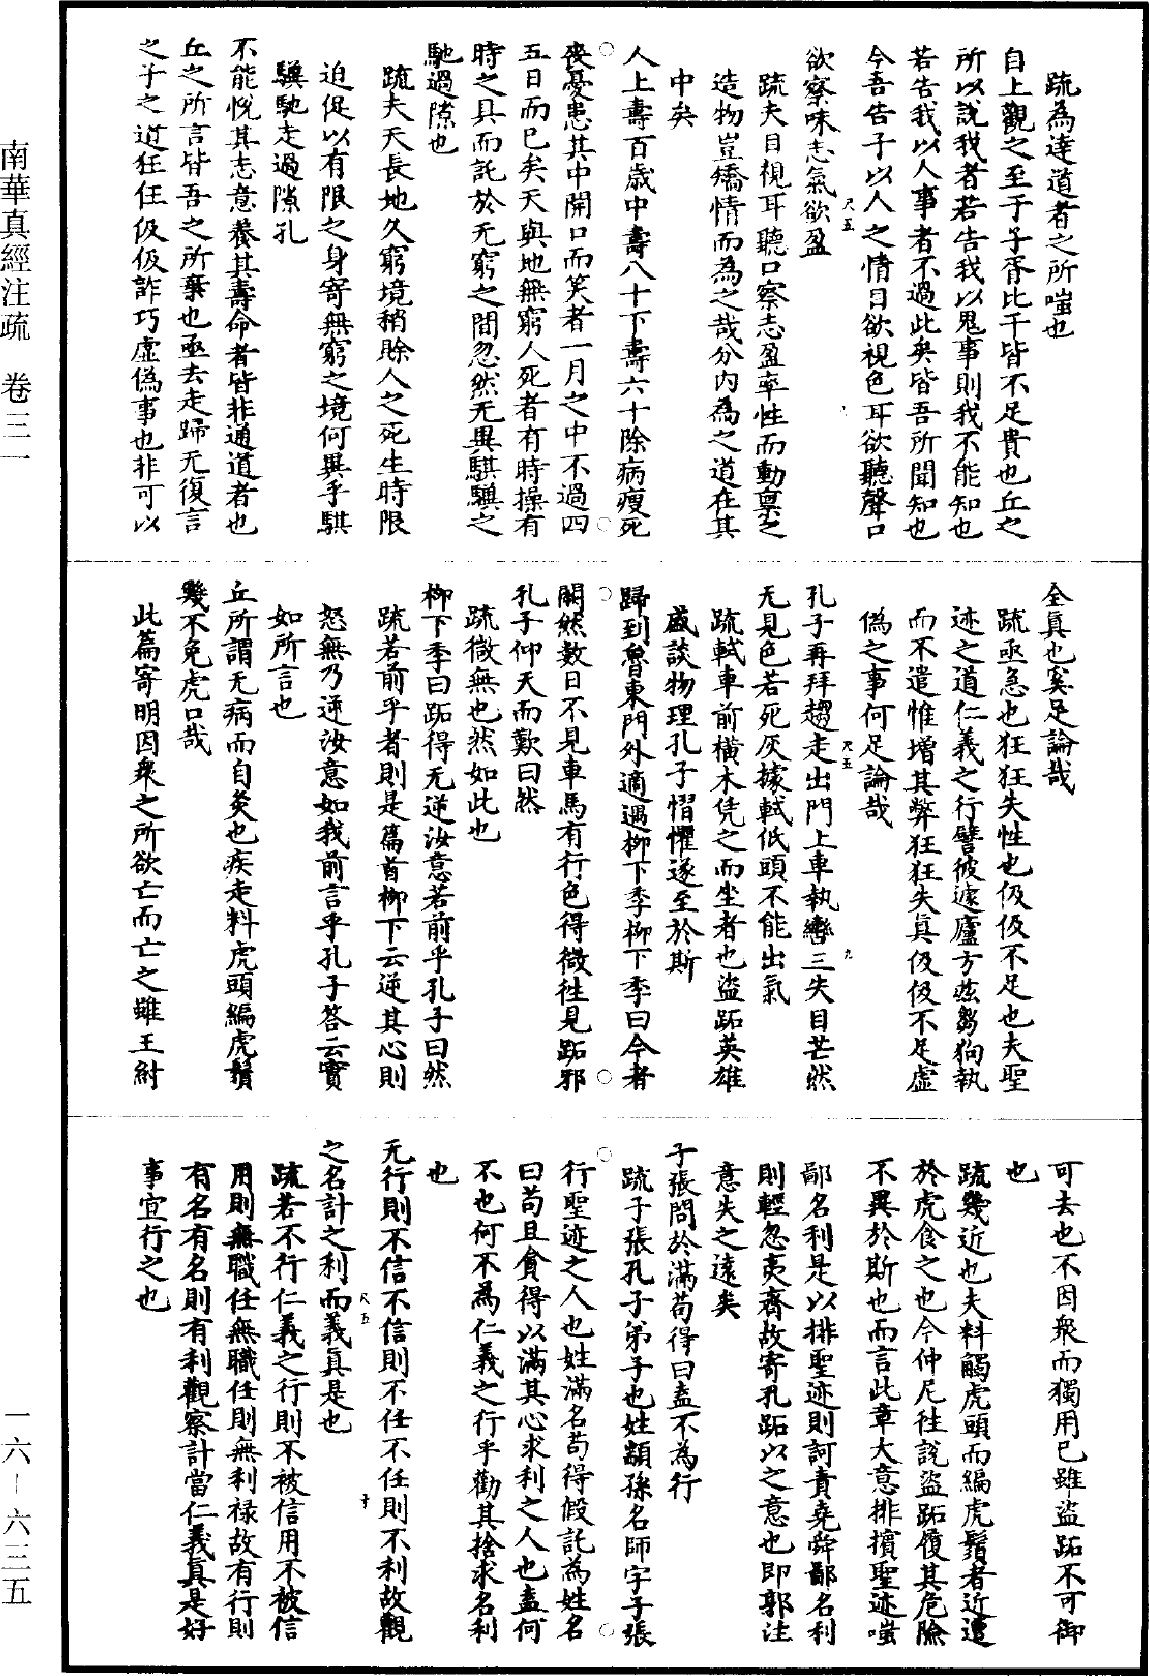 疏為達道者之所嗤也
自上觀之至于子胥比干皆不足貴也丘之
所以說我者若告我以鬼事則我不能知也
若告我以人事者不過此矣皆吾所聞知也
今吾告子以人之情目欲視色耳欲聽聲口
欲察味志氣欲盈
疏夫目視耳聽口察志盈率性而動稟之
造物豈矯情而為之哉分內為之道在其
中矣
人上壽百歲中壽八十下壽六十除病瘦死
喪憂患其中開口而笑者一月之中不過四
五日而已矣天與地無窮人死者有時操有
時之具而託於无窮之間忽然无異騏驥之
馳過隙也
疏夫天長地久窮境稍賒人之死生時限
迫促以有限之身寄無窮之境何異乎騏
驥馳走過隙孔
不能悅其志意養其壽命者皆非通道者也
丘之所言皆吾之所棄也亟去走歸无復言
之子之道狂狂伋伋詐巧虛偽事也非可以
全真也奚足論哉
疏亟急也狂狂失性也伋伋不足也夫聖
迹之道仁義之行譬彼蘧廬方茲芻狗執
而不遣惟增其弊狂狂失真伋伋不足虛
偽之事何足論哉
孔子再拜趨走出門上車執轡三失目芒然
无見色若死灰據軾低頭不能出氣
疏軾車前橫木凭之而坐者也盜跖英雄
盛談物理孔子慴懼遂至於斯
歸到魯東門外適遇柳下季柳下季曰今者
闕然數日不見車馬有行色得微往見跖邪
孔子仰天而歎曰然
疏微無也然如此也
柳下季曰跖得无逆汝意若前乎孔子曰然
疏若前乎者則是篇首柳下云逆其心則
怒無乃逆汝意如我前言乎孔子答云實
如所言也
丘所謂无病而自灸也疾走料虎頭編虎鬚
幾不免虎口哉
此篇寄明因衆之所欲亡而亡之雖王紂
可去也不因衆而獨用已雖盜跖不可御
也
疏幾近也夫料觸虎頭而編虎鬚者近遭
於虎食之也今仲尼往說盜跖履其危險
不異於斯也而言此章大意排擯聖迹嗤
鄙名利是以排聖迹則訶責堯舜鄙名利
則輕忽夷齊故寄孔跖以之意也即郭注
意失之遠矣
子張問於滿苟得曰盍不為行
疏子張孔子弟子也姓顓孫名師字子張
行聖迹之人也姓滿名苟得假託為姓名
曰苟且貪得以滿其心求利之人也盍何
不也何不為仁義之行乎勸其捨求名利
也
无行則不信不信則不任不任則不利故觀
之名計之利而義真是也
疏若不行仁義之行則不被信用不被信
用則無職任無職任則無利祿故有行則
有名有名則有利觀察計當仁義真是好
事宜行之也
南華真經注疏　卷三一
一六－六三五